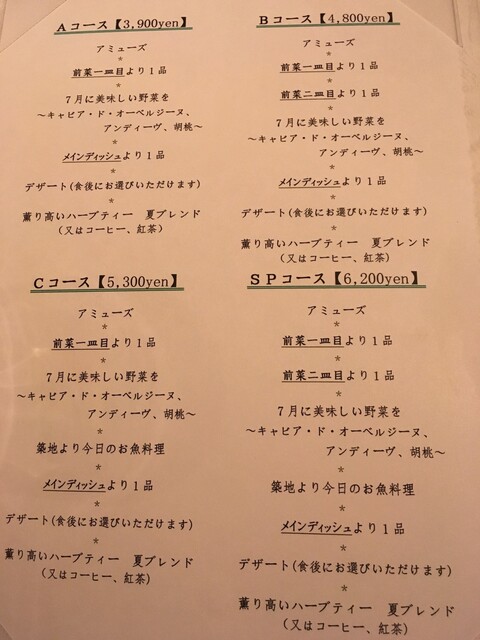 Aコース【3,900yen】
アミューズ
*
前菜一皿目より1品
*
7月に美味しい野菜を
～キャビア・ド・オーベルジーヌ、
アンディーヴ、胡桃～
*
メインディッシュより1品
*
デザート(食後にお選びいただけます)
*
薫り高いハーブティー　夏ブレンド
(又はコーヒー、紅茶)
Bコース【4,800yen】
アミューズ
*
前菜一皿目より1品
*
前菜二皿目より1品
*
7月に美味しい野菜を
～キャビア・ド・オーベルジーヌ、
アンディーヴ、胡桃～
*
メインディッシュより1品
*
デザート(食後にお選びいただけます)
*
薫り高いハーブティー　夏ブレンド
(又はコーヒー、紅茶)
Cコース【5,300yen】
アミューズ
*
前菜一皿目より1品
*
7月に美味しい野菜を
～キャビア・ド・オーベルジーヌ、
アンディーヴ、胡桃～
*
築地より今日のお魚料理
*
メインディッシュより1品
*
デザート(食後にお選びいただけます)
*
薫り高いハーブティー　夏ブレンド
(又はコーヒー、紅茶)
SPコース【6,200yen】
アミューズ
*
前菜一皿目より1品
*
前菜二皿目より1品
*
7月に美味しい野菜を
～キャビア・ド・オーベルジーヌ、
アンディーヴ、胡桃～
*
築地より今日のお魚料理
*
メインディッシュより1品
*
デザート(食後にお選びいただけます)
*
薫り高いハーブティー　夏ブレンド
(又はコーヒー、紅茶)